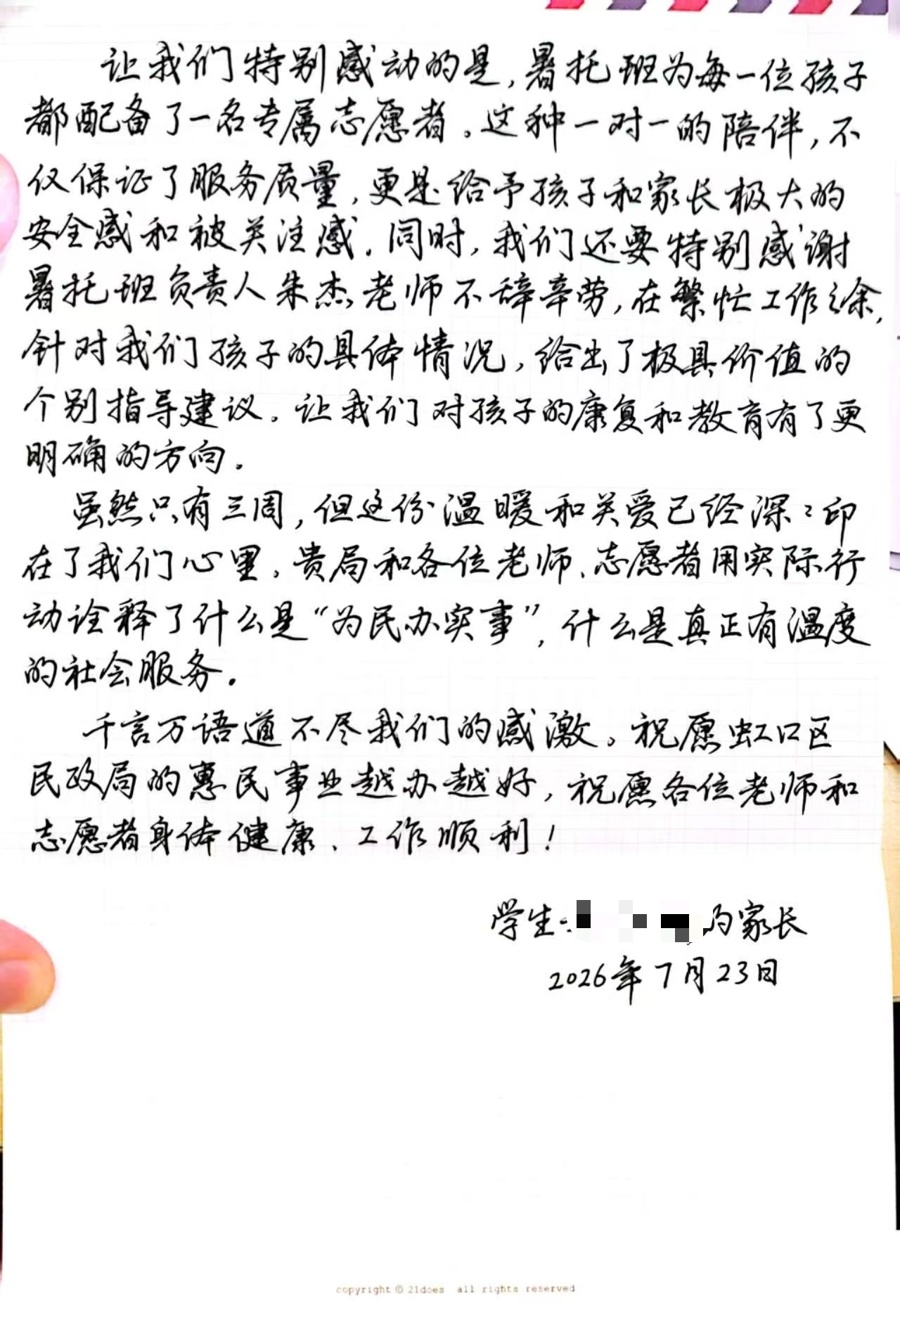 让我们特别感动的是，暑托班为每一位孩子
都配备了一名专属志愿者。这种一对一的陪伴，不
仅保证了服务质量，更是给予孩子和家长极大的
安全感和被关注感．同时，我们还要特别感谢
暑托班负责人朱杰老师不辞辛劳，在繁忙工作之余，
针对我们孩子的具体情况，给出了极具价值的
个别指导建议。让我们对孩子的康复和教育有了更
明确的方向。
虽然只有三周，但这份温暖和关爱已经深〻印
在了我们心里。贵局和各位老师、志愿者用实际行
动诠释了什么是“为民办实事”，什么是真正有温度
的社会服务。
千言万语道不尽我们的感激。祝愿虹口区
民政局的惠民事业越办越好，祝愿各位老师和
志愿者身体健康、工作顺利！
学生：的家长
2026年7月23日
copyright © 21does all rights reserved